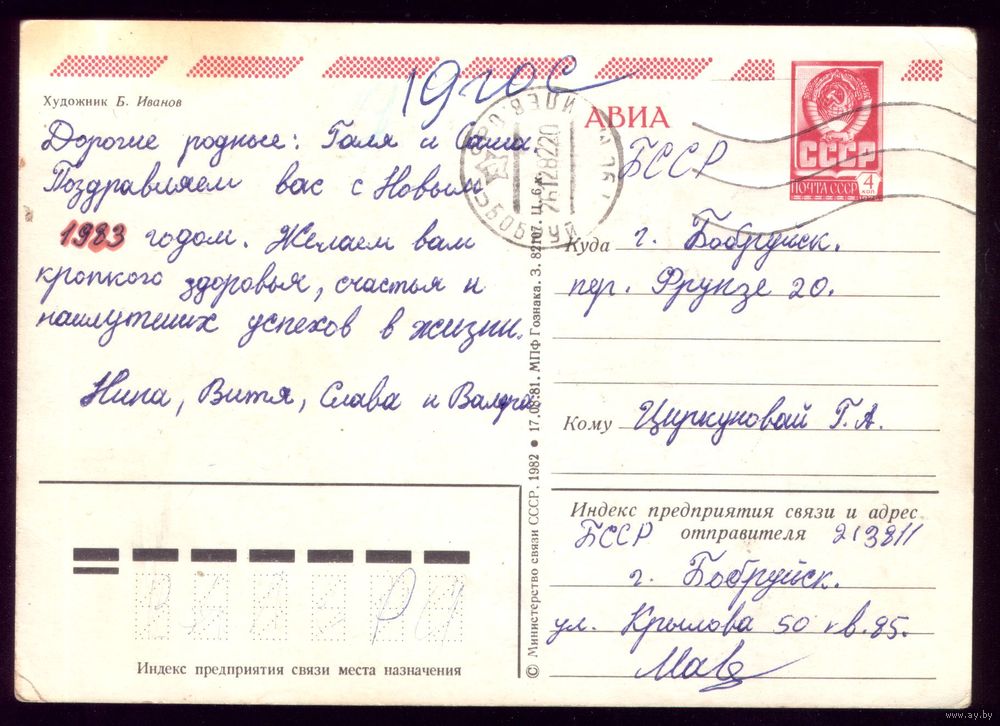 Художник Б. Иванов
Дорогие родные: Галя и Саша.
Поздравляем вас с Новым
1983 годом. Желаем вам
кропкого здоровья, счастья и
наилутших успехов в жизни.
Нина, Витя, Слава и Валера
Индекс предприятия связи места назначения
© Министерство связи СССР. 1982 ● 17.08.81. МПФ Гознака. З. 82107. Ц. 6 к.
АВИА
СССР
ПОЧТА СССР 4 коп
БССР
Куда г. Бобруйск.
пер. Фрунзе 20.
Кому Циркуновай Г. А.
Индекс предприятия связи и адрес
отправителя
БССР 213811
г. Бобруйск.
ул. Крылова 50 кв. 85.
www.ay.by